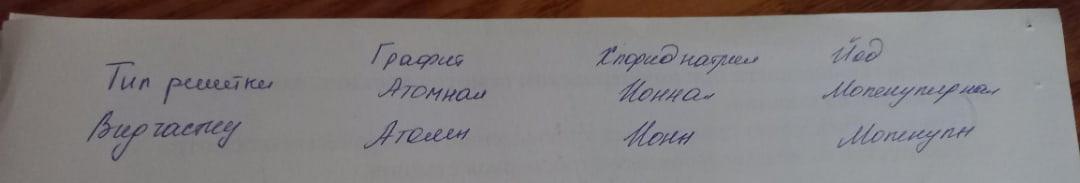 Графит Хлорид натрия Йод
Тип решетки Атомная Ионная Молекулярная
Вид частиц Атомы Ионы Молекулы